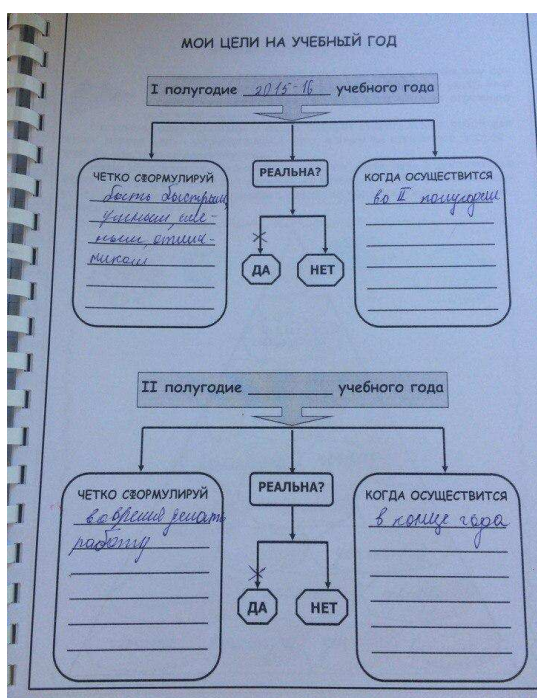 МОИ ЦЕЛИ НА УЧЕБНЫЙ ГОД
I полугодие 2015-16 учебного года
ЧЕТКО СФОРМУЛИРУЙ
быть быстрым,
умным, сме-
лым, отлич-
ником
РЕАЛЬНА?
ДА
НЕТ
КОГДА ОСУЩЕСТВИТСЯ
во II полугодии
II полугодие учебного года
ЧЕТКО СФОРМУЛИРУЙ
во время делать
работу
РЕАЛЬНА?
ДА
НЕТ
КОГДА ОСУЩЕСТВИТСЯ
в конце года